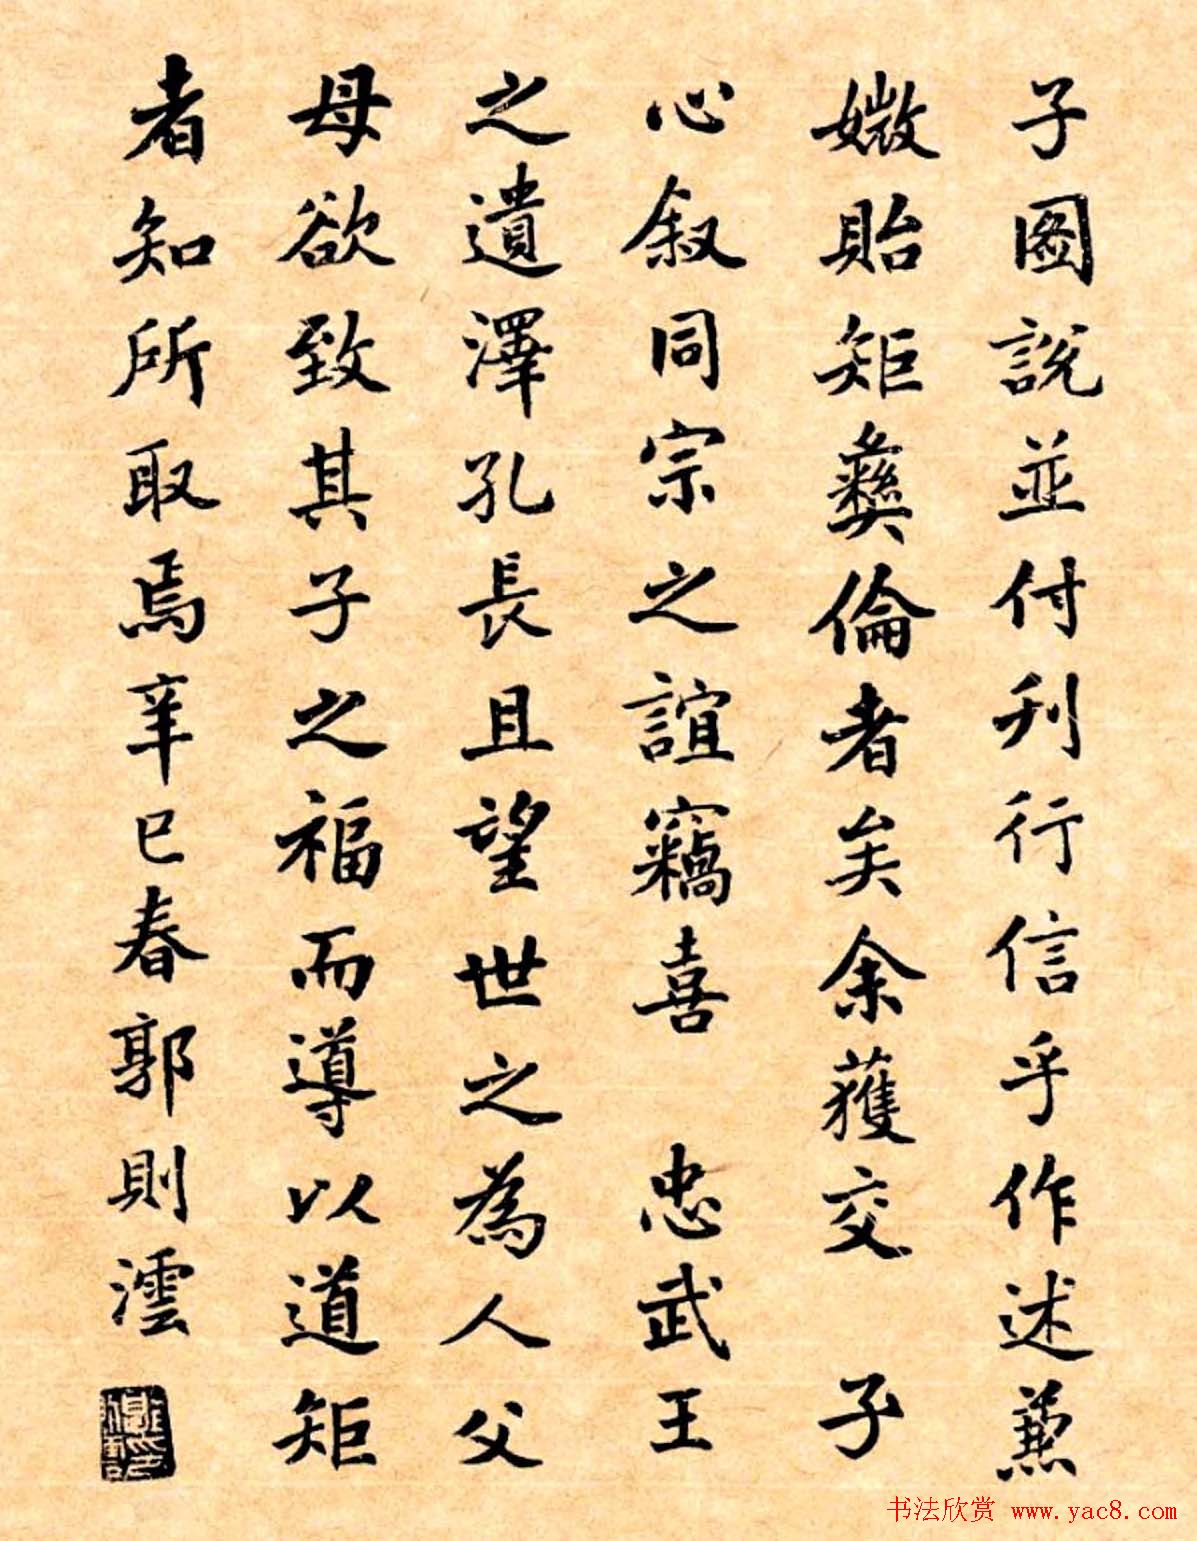 子圖說並付刊行信乎作述兼
媺貽矩彝倫者矣余獲交 子
心叙同宗之誼竊喜 忠武王
之遺澤孔長且望世之為人父
母欲致其子之福而導以道矩
者知所取焉辛巳春郭則澐
书法欣赏 www.yac8.com